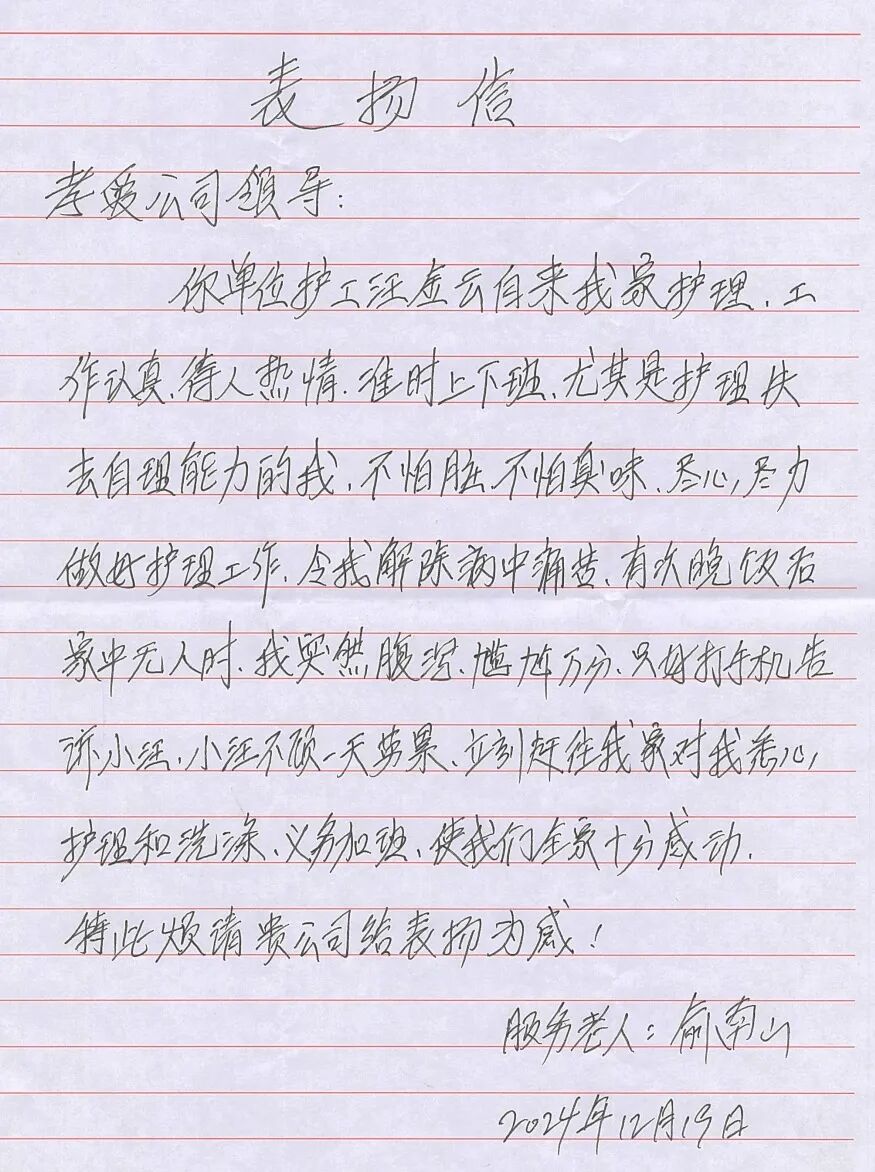 表扬信
孝爱公司领导:
你单位护工汪金云自来我家护理、工
作认真、待人热情、准时上下班、尤其是护理失
去自理能力的我、不怕脏、不怕臭味、尽心,尽力
做好护理工作、令我解除病中痛苦、有次晚饭后
家中无人时、我突然腹泻、尴尬万分、只好打手机告
诉小汪、小汪不顾一天劳累、立刻赶往我家对我悉心,
护理和洗涤、义务加班、使我们全家十分感动.
特此烦请贵公司给表扬为感!
服务老人:俞南山
2024年12月19日